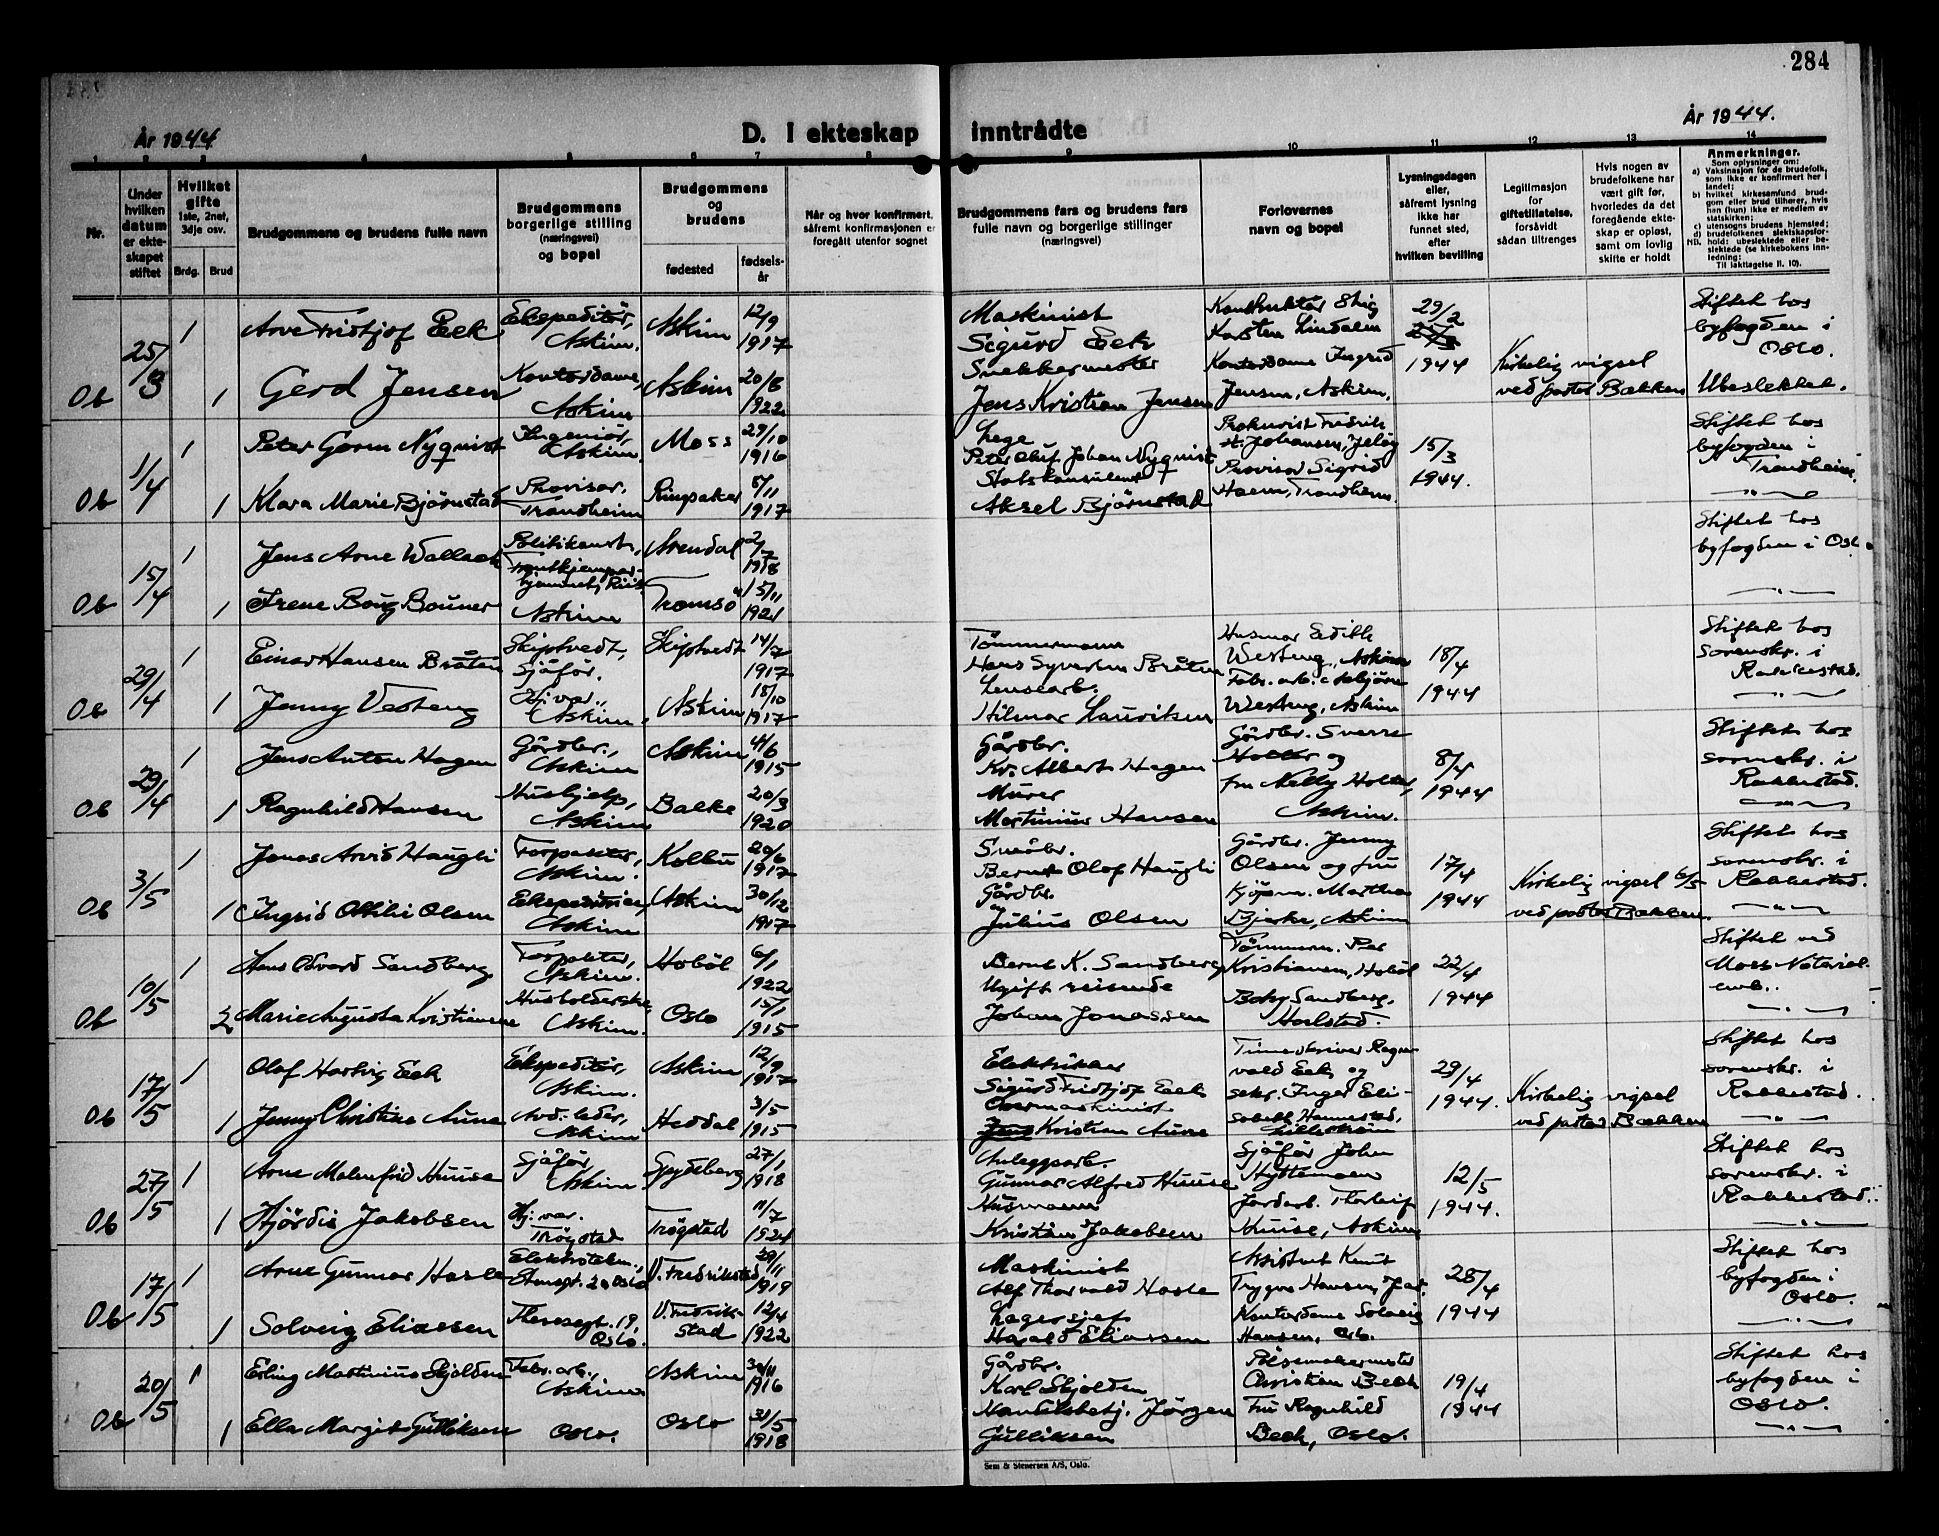 284
År 1944
D. I ekteskap inntrådte
År 1944.
1 2 3 4 5 6 7 8 9 10 11 12 13 14
Nr.
Under hvilken datum er ekteskapet stiftet
Hvilket gifte
1ste, 2net, 3dje osv.
Brdg. Brud
Brudgommens og brudens fulle navn
Brudgommens borgerlige stilling (næringsvei) og bopel
Brudgommens og brudens
fødested
fødselsår
Når og hvor konfirmert, såfremt konfirmasjonen er foregått utenfor sognet
Brudgommens fars og brudens fars fulle navn og borgerlige stillinger (næringsvei)
Forlovernes navn og bopel
Lysningsdagen eller, såfremt lysning ikke har funnet sted, efter hvilken bevilling
Legitimasjon for giftetillatelse, forsåvidt sådan tiltrenges
Hvis nogen av brudefolkene har vært gift før, hvorledes da det foregående ekteskap er opløst, samt om lovlig skifte er holdt
Anmerkninger.
Som oplysninger om:
a) Vaksinasjon for de brudefolk, som ikke er konfirmert her i landet;
b) hvilket kirkesamfund brudgom eller brud tilhører, hvis han (hun) ikke er medlem av statskirken;
c) utensogns brudens hjemsted;
d) brudefolkenes slektskapsforhold: ubeslektede eller beslektede (se kirkebokens innledning:
NB. Til iakttagelse II. 10).
Ob 25/3 1 Arve Fridtjof Eek Ekspeditör, Askim. Askim 12/9 1917 Maskinist Sigurd Eek Konduktör Stig Karsten Lindalen 29/2 1944 Kirkelig vigsel ved pastor Bækken Stiftet hos byfogden i Oslo.
1 Gerd Jensen Kontordame, Askim Askim 20/8 1922 Snekkermester Jens Kristian Jensen Kontordame Ingrid Jensen, Askim. Ubeslektet.
Ob 1/4 1 Peter Gorm Nyquist Ingeniör, Askim. Moss 29/10 1916 Lege Peter Oluf Johan Nyquist Prokurist Fredrik St. Johansen, Jelöy 15/3 1944. Stiftet hos byfogden i Trondheim.
1 Klara Marie Bjørnstad Provisor, Trondheim Ringsaker 5/11 1917 Statskonsulent Aksel Bjørnstad Provisor Sigrid Haem, Trondheim. "
Ob 15/4 1 Jens Arne Wallack Politikonst., Arendal 2/7 1918 Stiftet hos byfogden i Oslo
1 Irene Boug Bouner Askim Tromsö 15/11 1921 "
Ob 29/4 1 Einar Hansen Bråten Skiptvedt, Sjåfør. Skiptvedt 14/7 1917 Tömmermann Hans Syversen Bråten Husmor Edith Westeng, Askim 18/4 1944 Stiftet hos sorenskr. i Rakkestad.
1 Jenny Vesteng Hj. var., Askim. Askim 18/10 1917 Lensearb. Hilmar Lauritsen Fabr. arb. Asbjörn Westeng, Askim "
Ob 29/4 1 Jens Anton Hagen Gårdbr., Askim Askim 4/6 1915 Gårdbr. Kr. Albert Hagen Gårdbr. Sverre Holter og 8/4 1944 Stiftet hos sorenskr. i Rakkestad.
1 Ragnhild Hansen Hushjelp, Askim Balke 20/3 1920 Murer Martinius Hansen fru Nelly Holter, Askim. "
Ob 3/5 1 Jonas Arvid Haugli Torpeister, Askim. Kolbu 20/6 1917 Småbr. Bernt Olaf Haugli Gårdbr. Jenny Olsen og fru 17/4 1944 Kirkelig vigsel 6/5 ved pastor Bækken. Stiftet hos sorenskr. i Rakkestad.
1 Ingrid Ottilie Olsen Ekspeditrise, Askim Askim 30/12 1917 Gårdbr. Julius Olsen Kjöpm. Martha Bjerke, Askim "
Ob 10/5 1 Hans Edvard Sandberg Askim. Hoböl 6/1 1922 Bernt K. Sandberg Tömmerm. Per Kristiansen, Hobøl 22/4 1944 Stiftet ved Moss Notarial emb.
2 Marie Augusta Kristiansen Husholderske, Askim. Oslo 15/1 1915 Ugift reisende Johan Jonassen Sandberg, Harlstad. "
Ob 17/5 1 Olaf Hartvig Eek Ekspeditör, Askim. Askim 12/9 1917 Elektriker Sigurd Fridtjof Eek Timeskriver Ragnvald Eek og 29/4 1944. Kirkelig vigsel ved pastor Bækken Stiftet hos sorenskr. i Rakkestad.
1 Jenny Christine Aune Avd. leder, Askim Heddal 3/5 1915 Overmaskinist Jens Kristian Aune sekr. Inger Elisabeth Hannestad, Lilleström "
Ob 27/5 1 Arne Malmfrid Huuse Sjåför Askim. Spydeberg 27/1 1918 Anleggsarb. Gunnar Alfred Huuse Sjåför John Hyttemoen 12/5 1944. Stiftet hos sorenskr. i Rakkestad.
1 Hjördis Jakobsen Hj. var. Trøgstad Trøgstad 11/7 1924 Husmann Kristian Jakobsen Jordarb. Thorleif Huuse, Askim "
Ob 17/5 1 Arne Gunnar Hasle Elektrotekn., 20 Oslo V. Fredrikstad 29/11 1919 Maskinist Alf Thorvald Hasle Assistent Knut Trygve Hansen, 28/4 1944 Stiftet hos byfogden i Oslo.
1 Solveig Eliassen Theresegt. 19, Oslo. V. Fredrikstad 12/4 1922 Lagersjef Harald Eliassen Kontordame Solveig Hansen, Oslo. "
Ob 20/5 1 Erling Martinius Skjolden Fabr. arb., Askim Askim 30/11 1916 Gårdbr. Karl Skjolden Pölsemakermester Christian Beck 19/4 1944 Stiftet hos byfogden i Oslo.
1 Ella Margit Gulliksen Oslo. Oslo 31/5 1918 Handelsbetj. Jörgen Gulliksen Fru Ragnhild Beck, Oslo. "
Sem & Stenersen A/S, Oslo.